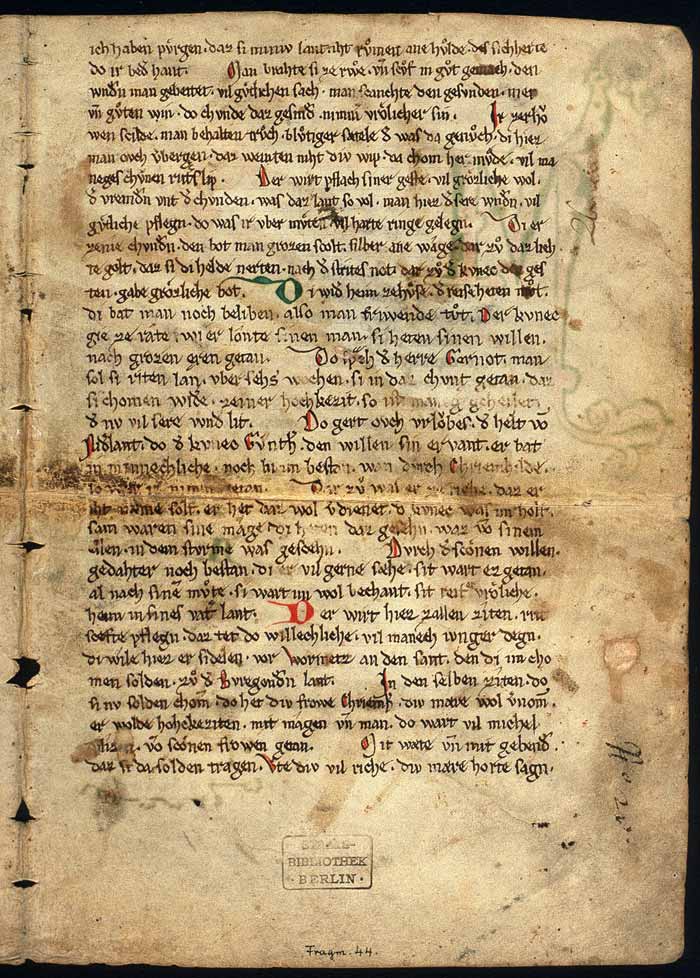 ich haben pvrgen · daz si miniv lant · iht rvmen ane hvlde · des sichheite
do ir beð hant. Man brahte si ze rwe · vñ schvf in gvt gemach · den
wnden man gebettet · vil gvtlichen sach · man scancte den gesvnden · met
vñ gvten win · do chvnde daz gesind · nimmˢ vrolicher sin · Ir zerho
wen scilde · man behalten trvch · blvtiger satele ð was da genvch · di hiez
man ovch vˢbergen · daz weinten niht div wip · da chom her mvde · vil ma
neges chvnen rittˢs lip · Der wirt pflach siner geste · vil grozliche wol ·
ð vremden vnt ð chvnden · was daz lant so vol · man hiez ð sere wnden · vil
gvtliche pflegn · do was ir vber mvten · vil harte ringe gelegn · Di er
zenie chvnden · den bot man grozen scolt · silber ane wage · dar zv daz lieh
te golt · daz si di helde nerten · nach ð strites not · dar zv ð kvnec den ges
ten · gabe grozliche bot · Di wið heim zehvse · ð reise heten mvt ·
di bat man noch beliben · also man frivende tvt · Der kvnec
gie ze rate · wi er lonte sinen man · si heten sinen willen ·
nach grozen eren getan · Do sprch ð herre Gernot · man
sol si riten lan · vber sehs wochen · si in daz chvnt getan · daz
si chomen wiðˢ · zeiner hochkezit · so ist maneg geheilet
ð nv vil sere wnd lit · Do gert ovch vrlobes · ð helt võ
Niðˢlant · do ð kvnec Gvnthˢ · den willen sin ervant · er bat
in minnechliche · noch bi im bestan · wan dvrch Chriemhilde ·
so wær iz nimmˢ getan · Dar zv was er ze riche · daz er
iht næme solt · er het daz wol vˢdienet · ð kvnec was im holt ·
sam waren sine mage · di heten daz gesehn · waz võ sinem
ellen · in dem stvrme was gescehn · Dvrch ð scônen willen ·
gedahter noch bestan · di er vil gerne sæhe · sit wart ez getan ·
al nach sinē mvte · si wart im wol bechant · sit reit er vrôliche ·
heim in sines vatˢ lant · Der wirt hiez zallen ziten · rit
scefte pflegn · daz tet do willechliche · vil manech ivnger degn ·
di wile hiez er sidelen · vor Wormetz an den sant · den di im cho
men solden · zv ð Bvregonden lant · In den selben ziten · do
si nv solden chom · do het div frowe Chriemh · div mære wol vˢnom̄ ·
er wolde hohekeziten · mit magen vñ man · do wart vil michel
vlizen · võ scônen frowen getan · Mit wæte vñ mit gebende
daz si da solden tragen · Vte div vil riche · div mære horte sagn ·
BIBLIOTHEK
· BERLIN ·
Fragm. 44.